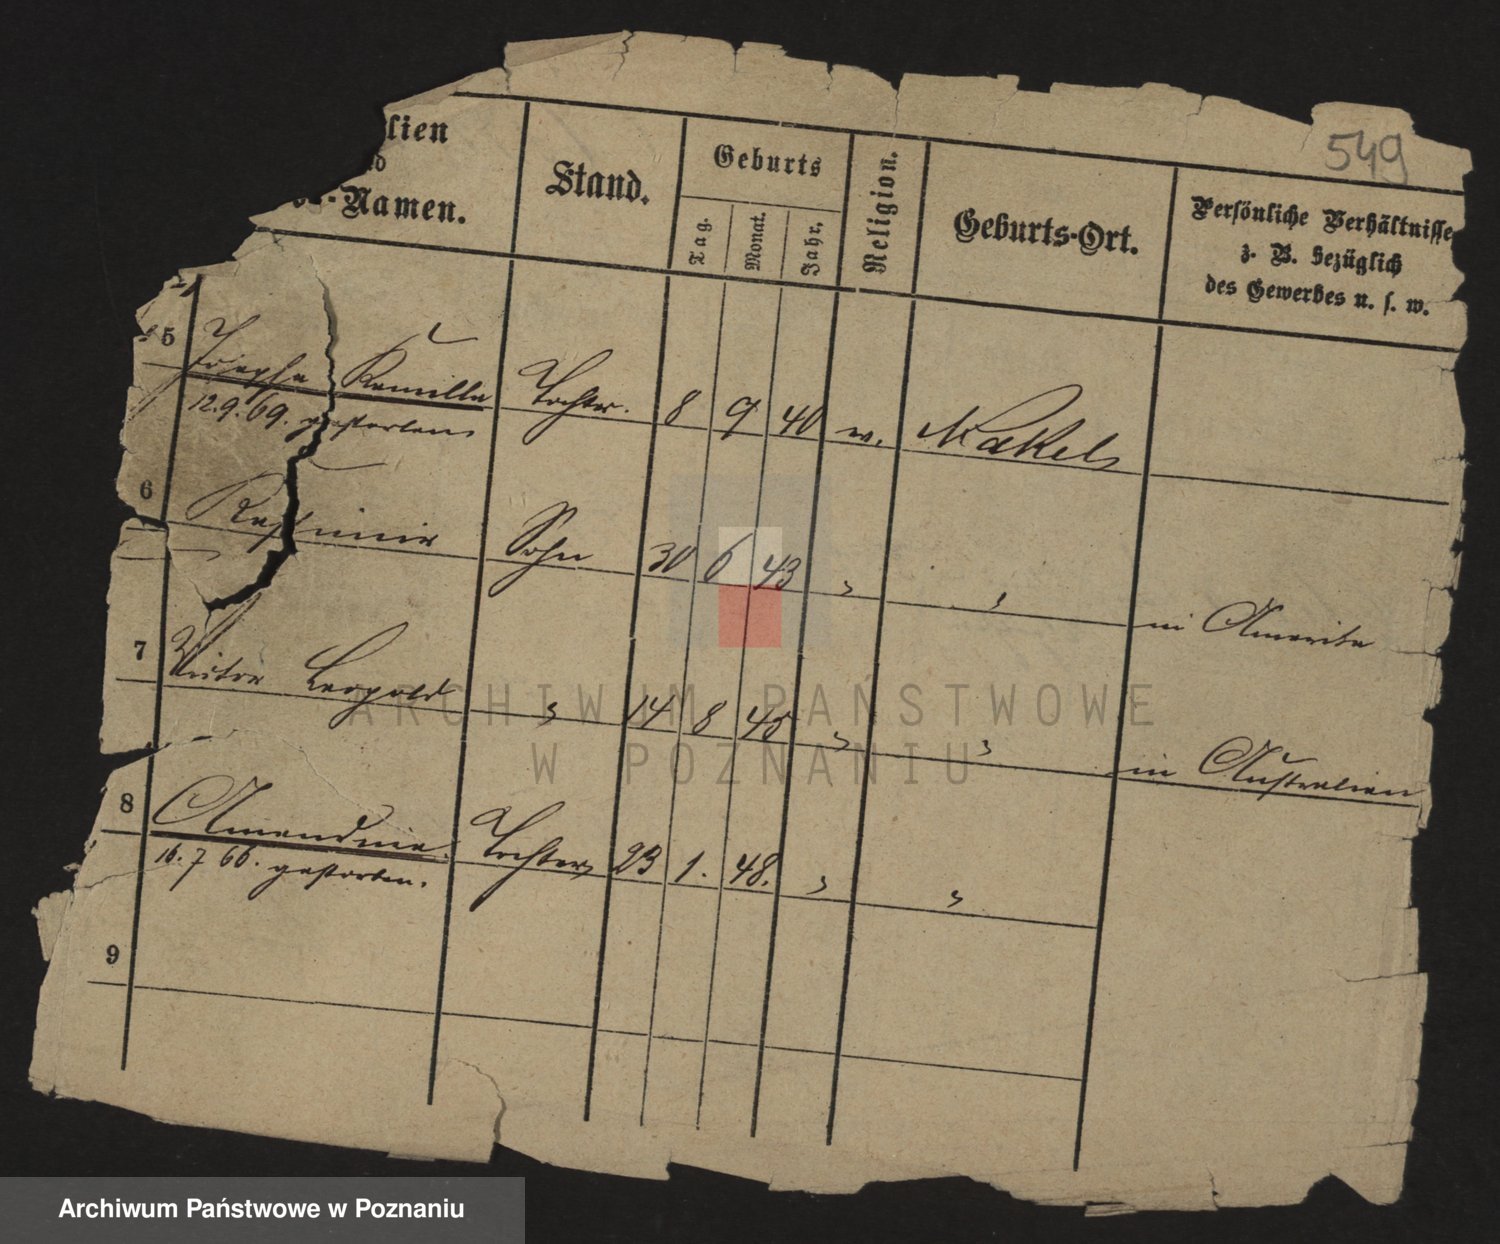 549
lien
nd
-Namen.
Stand.
Geburts
Tag.
Monat.
Jahr.
Religion.
Geburts-Ort.
Persönliche Verhältnisse
z. B. bezüglich
des Gewerbes u. s. w.
5 Josepha Kamilla Tochter. 8 9 40 w. Nakel
12.9.69. gestorben
6 Kasimir Sohn 30 6 43 " " in Amerika
7 Victor Leopold " 14 8 45 " " in Australien
8 Amandine Tochter 23 1. 48. " "
16.7 66. gestorben.
9
ARCHIWUM PAŃSTWOWE
W POZNANIU
Archiwum Państwowe w Poznaniu